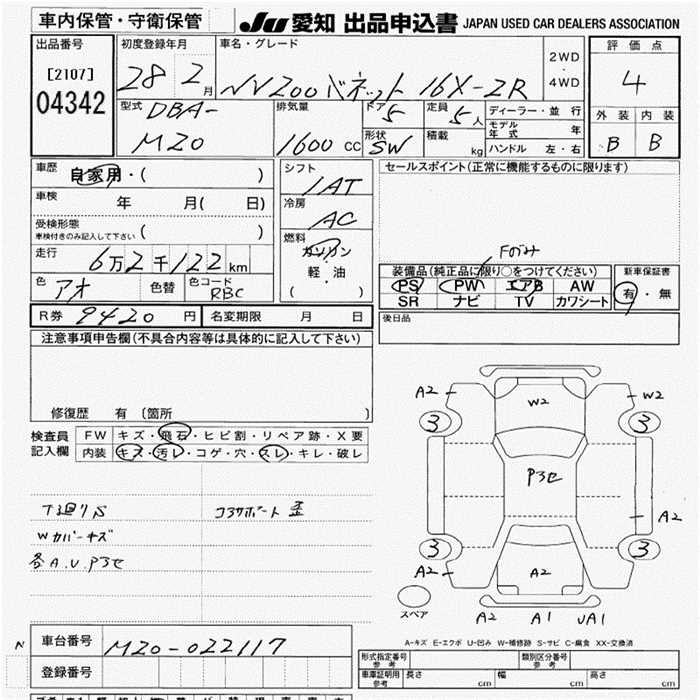 車内保管・守衛保管
JU 愛知 出品申込書 JAPAN USED CAR DEALERS ASSOCIATION
出品番号
[2107]
04342
初度登録年月
28 2月
車名・グレード
NV200バネット 16X-2R
2WD
・
4WD
評価点
4
外装 内装
B B
型式
DBA-
M20
排気量
1600 CC
ドア 5
定員 5人
形状 SW
積載 kg
ディーラー・並行
モデル年式 年
ハンドル 左・右
車歴 自家用・( )
車検 年 月( 日)
受検形態
車検付きのみ記入して下さい ( )
走行 6万2千122km
色 アオ 色替 色コード RBC
シフト
IAT
冷房
AC
燃料
ガソリン
軽・油
( )
セールスポイント(正常に機能するものに限ります)
Fのみ
装備品(純正品に限り○をつけてください)
PS PW エアB AW
SR ナビ TV カワシート
新車保証書
有・無
R券 9420円 名変期限 月 日
後日品
注意事項申告欄(不具合内容等は具体的に記入して下さい)
修復歴 有〔箇所 〕
検査員
記入欄
FW キズ・飛石・ヒビ割・リペア跡・X要
内装 キズ・汚レ・コゲ・穴・スレ・キレ・破レ
下廻りS コアサポート歪
Wカバーキズ
各A.U.Pアセ
A2 W2 W2
3 3
Pアセ
A2
3 3
A2 A2
スペア
A2 A1 UA1
A-キズ E-エクボ U-凹み W-補修跡 S-サビ C-腐食 XX-交換済
N
車台番号 M20-022117
登録番号
形式指定番号
参考
類別区分番号
参考
車庫証明用
参考
長さ cm 幅 cm 高さ cm